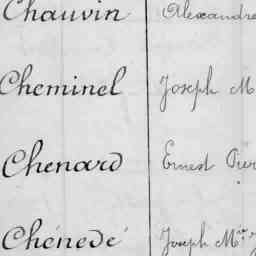 Chauvin Alexandre
Cheminel Joseph M
Chenard Ernest Pier
Chénedé Joseph M.ie